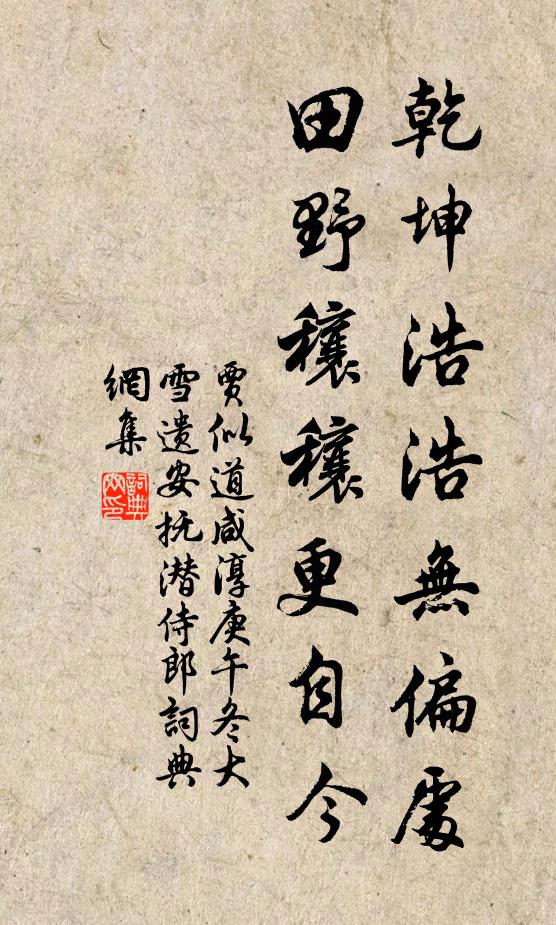 乾坤浩浩無偏處
田野穰穰更自今
賈似道咸淳庚午冬大
雪遺安抚潜侍郎詞典
網集
詞典
網印